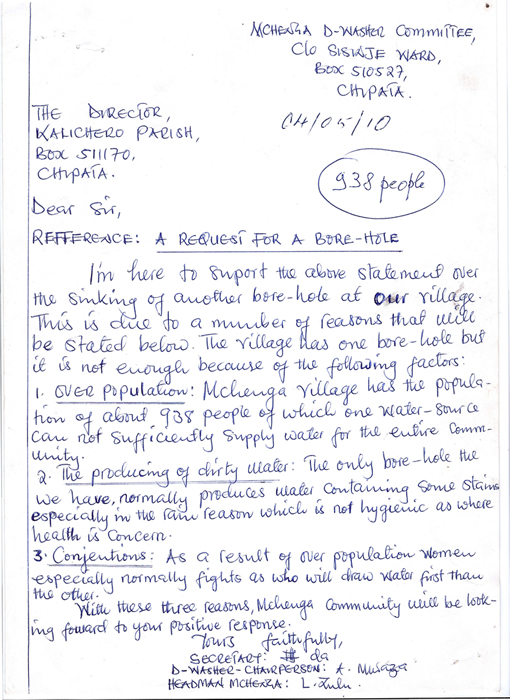 MCHENGA D-WASHER COMMITTEE,
C/O SISINJE WARD,
BOX 510527,
CHIPATA.
THE DIRECTOR,
KALICHERO PARISH,
BOX 511170,
CHIPATA.
04/05/10
938 people
Dear Sir,
REFFERENCE: A REQUEST FOR A BORE-HOLE
I'm here to suport the above statement over
the sinking of another bore-hole at our village.
This is due to a number of reasons that will
be stated below. The village has one bore-hole but
it is not enough because of the following factors:
1. OVER POPULATION: Mchenga Village has the popula-
tion of about 938 people of which one water-source
can not sufficiently supply water for the entire Comm-
unity.
2. The producing of dirty water: The only bore-hole the
we have, normally produces water containing some stains
especially in the rain reason which is not hygienic as where
health is concern.
3. Conjentions: As a result of over population women
especially normally fights as who will draw water first than
the other.
With these three reasons, Mchenga Community will be look-
ing forward to your positive response.
Yours faithfully,
SECRETARY: da
D-WASHER-CHAIRPERSON: A. Musaza
HEADMAN MCHENGA: L. Zulu.